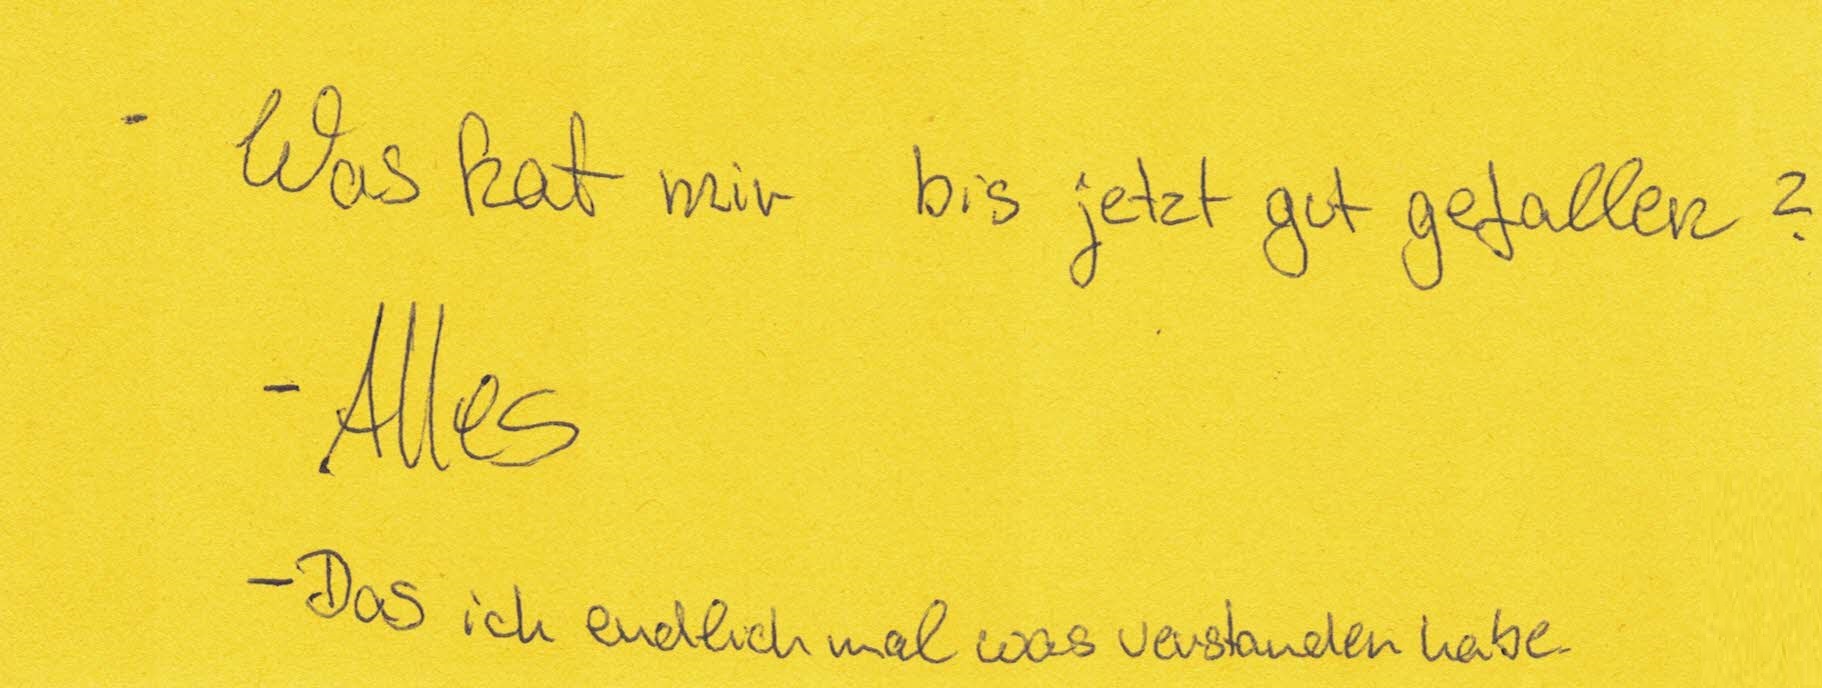 - Was hat mir bis jetzt gut gefallen?
- Alles
- Das ich endlich mal was verstanden habe.